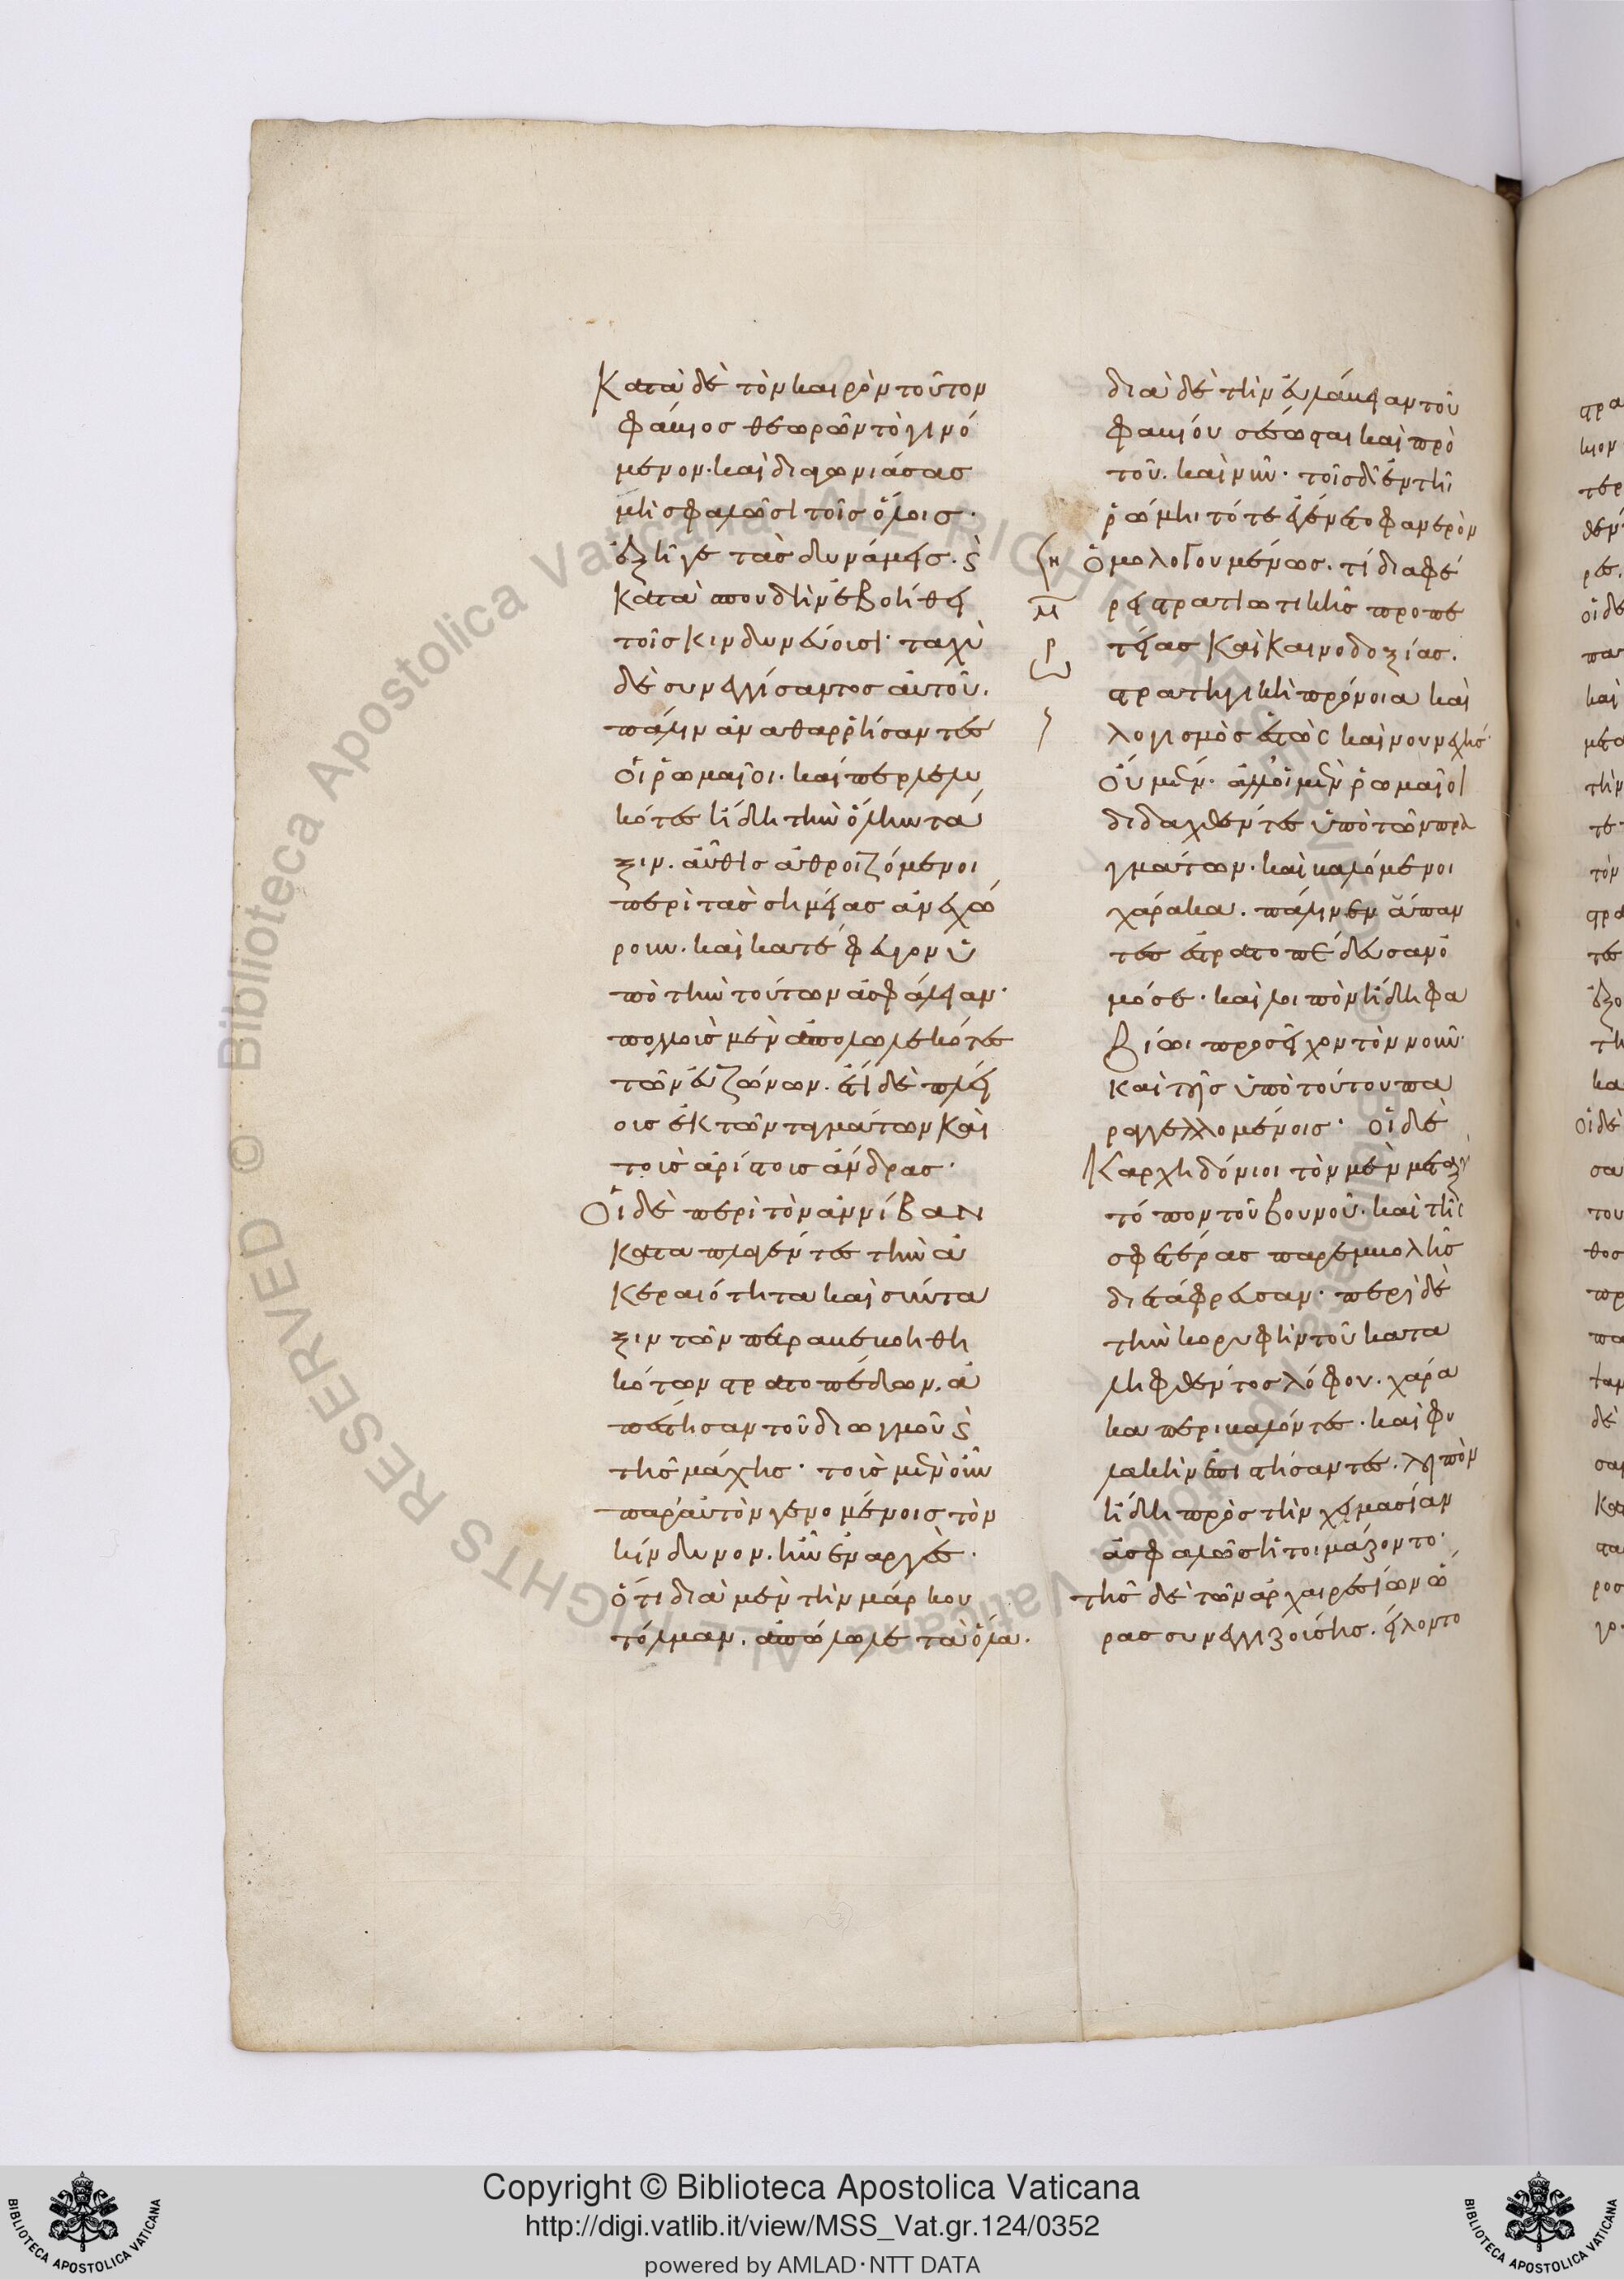 Κατὰ δὲ τὸν καιρὸν τοῦτον
φάβιος θεωρῶν τὸ γινό
μενον· καὶ διαγωνιάσας
μὴ σφαλῶσι τοῖς ὅλοις·
ἐξῆγε τὰς δυνάμεις· ϗ
κατὰ σπουδὴν ἐβοήθει
τοῖς κινδυνεύουσι· ταχὺ
δὲ συνεγγίσαντος αὐτοῦ.
πάλιν ἀναθαρρήσαντες
οἱ ῥωμαῖοι· καίπερ λελυ
κότες ἤδη τὴν ὅλην τά
ξιν. αὖθις ἀθροιζόμενοι
περὶ τὰς σημείας ἀνεχώ
ρουν. καὶ κατέφευγον ὑ
πὸ τὴν τούτων ἀσφάλειαν·
πολλοὺς μὲν ἀπολωλεκότες
τῶν εὐζώνων. ἔτι δὲ πλεί
ους ἐκ τῶν ταγμάτων καὶ
τοὺς ἀρίστους ἄνδρας·
Οἱ δὲ περὶ τὸν ἀννίβαν
καταπλαγέντες τὴν ἀ
κεραιότητα καὶ σύντα
ξιν τῶν παραβεβοηθη
κότων στρατοπέδων. ἀ
πέστησαν τοῦ διωγμοῦ ϗ
τῆς μάχης· τοῖς μὲν οὖν
παρ' αὐτὸν γενομένοις τὸν
κίνδυνον. ἦν ἐναργές·
ὅτι διὰ μὲν τὴν μάρκου
τόλμαν. ἀπόλωλε τὰ ὅλα.
διὰ δὲ τὴν εὐλάβειαν τοῦ
φαβίου σέσωσται καὶ πρὸ
τοῦ. καὶ νῦν· τοῖς δ' ἐν τῆι
ῥώμηι τότε ἐγένετο φανερὸν
ὁμολογουμένως. τί διαφέ
ρει στρατιωτικῆς προπε
τείας καὶ καινοδοξίας.
στρατηγικὴ πρόνοια καὶ
λογισμὸς ἑστὼς καὶ νουνεχής·
Οὐ μὴν· ἀλλ' οἱ μὲν ῥωμαῖοι
διδαχθέντες ὑπὸ τῶν πρα
γμάτων. καὶ βαλόμενοι
χάρακα. πάλιν ἕνα ἅπαν
τες ἐστρατοπέδευσαν ὁ
μόσε· καὶ λοιπὸν ἤδη φα
βίωι προσεῖχον τὸν νοῦν·
καὶ τοῖς ὑπὸ τούτου πα
ραγγελλομένοις· οἱ δὲ
Καρχηδόνιοι τὸν μὲν μεταξὺ
τόπον τοῦ βουνοῦ· καὶ τῆς
σφετέρας παρεμβολῆς
διετάφρευσαν· περὶ δὲ
τὴν κορυφὴν τοῦ κατα
ληφθέντος λόφου. χάρα
κα περιβαλόντες· καὶ φυ
λακὴν ἐπιστήσαντες. λοιπὸν
ἤδη πρὸς τὴν χειμασίαν
ἀσφαλῶς ἡτοιμάζοντο·
τῆς δὲ τῶν ἀρχαιρεσίων ὥ
ρας συνεγγιζούσης. εἵλοντο
Copyright © Biblioteca Apostolica Vaticana
http://digi.vatlib.it/view/MSS_Vat.gr.124/0352
powered by AMLAD·NTT DATA
BIBLIOTECA APOSTOLICA VATICANA
BIBLIOTECA APOSTOLICA VATICANA
© Biblioteca Apostolica Vaticana ALL RIGHTS RESERVED